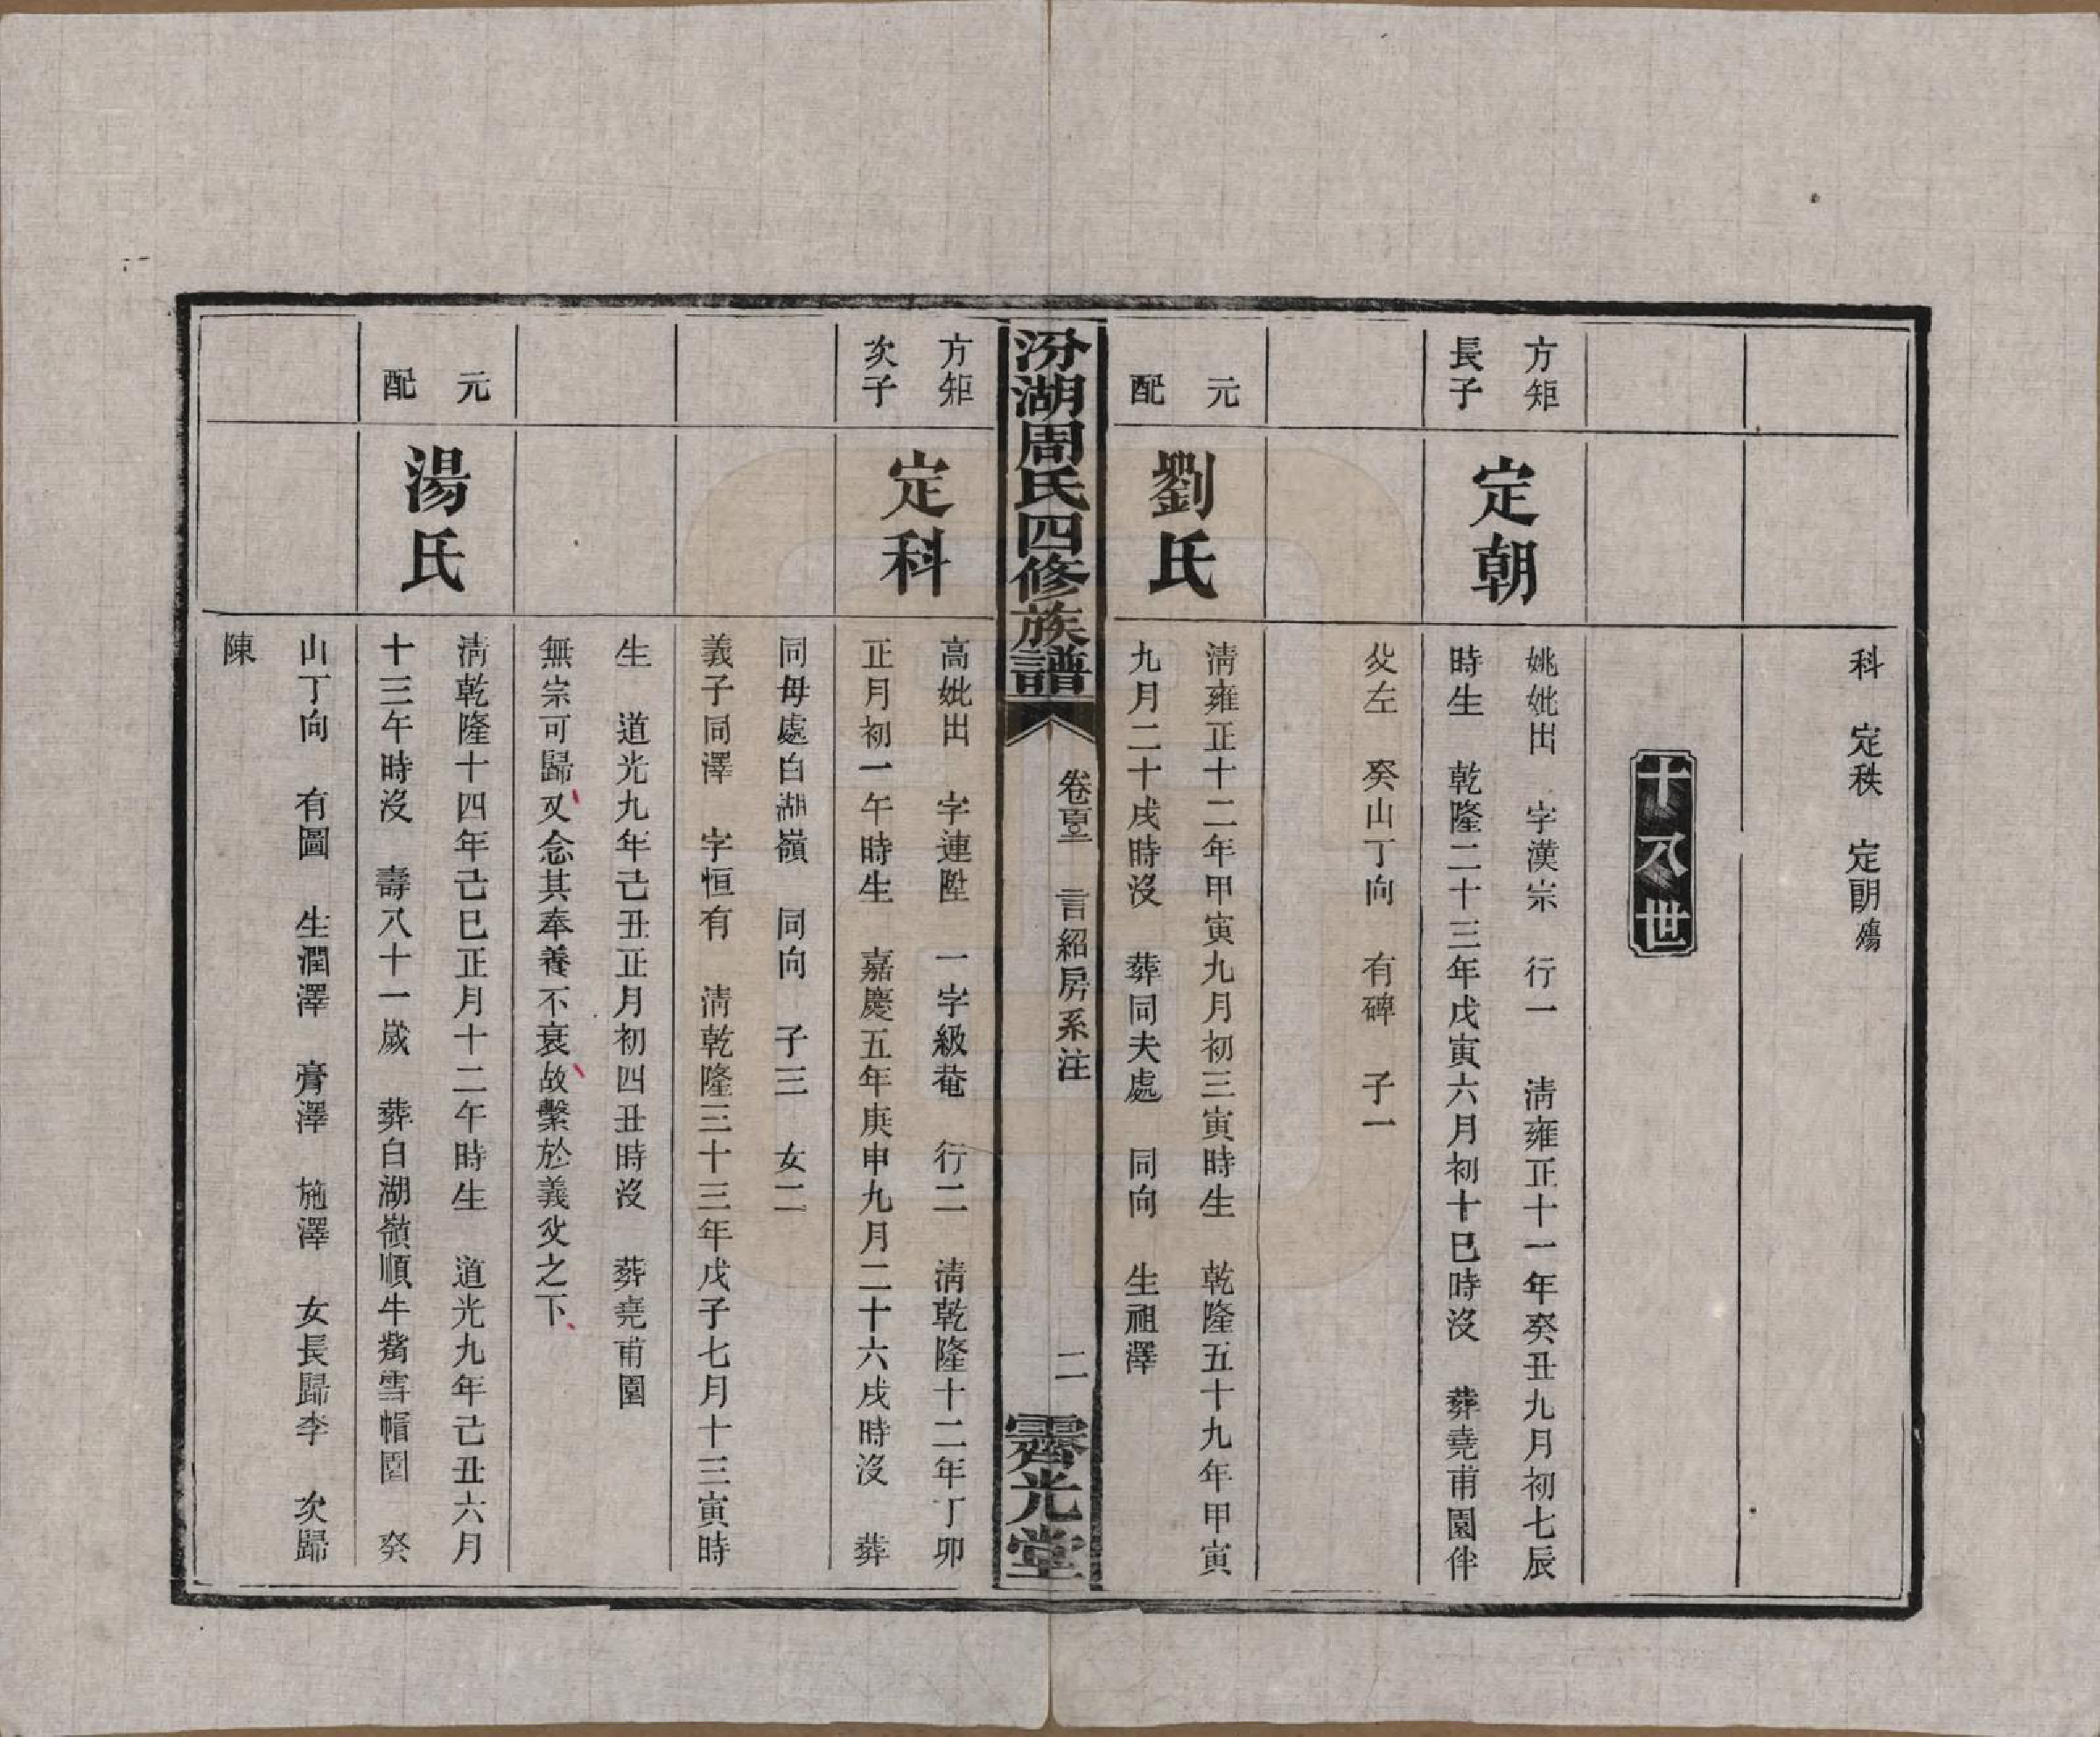 科　定秩　定朙殤
十八世
方矩
長子
定朝
姚妣出　字漢宗　行一　淸雍正十一年癸丑九月初七辰
時生　乾隆二十三年戊寅六月初十巳時沒　葬堯甫園伴
父左　癸山丁向　有碑　子一
元
配
劉氏
淸雍正十二年甲寅九月初三寅時生　乾隆五十九年甲寅
九月二十戌時沒　葬同夫處　同向　生祖澤
汾湖周氏四修族譜
卷　言紹房系注
二
霽光堂
方矩
次子
定科
高妣出　字連陞　一字級菴　行二　淸乾隆十二年丁卯
正月初一午時生　嘉慶五年庚申九月二十六戌時沒　葬
同母處白湖嶺　同向　子三　女二
義子同澤　字恒有　淸乾隆三十三年戊子七月十三寅時
生　道光九年己丑正月初四丑時沒　葬堯甫園
無宗可歸又念其奉養不衰故繫於義父之下
元
配
湯氏
淸乾隆十四年己巳正月十二午時生　道光九年己丑六月
十三午時沒　壽八十一歲　葬白湖嶺順牛雪帽園　癸
山丁向　有圖　生潤澤　膏澤　施澤　女長歸李　次歸
陳